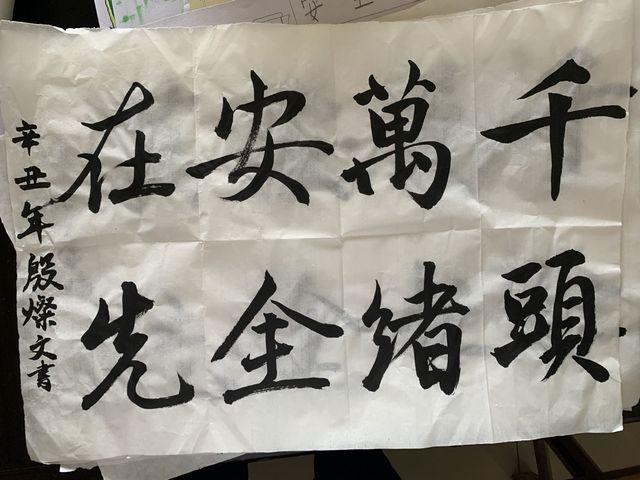 千頭
萬緒
安全
在先
辛丑年殷燦文書